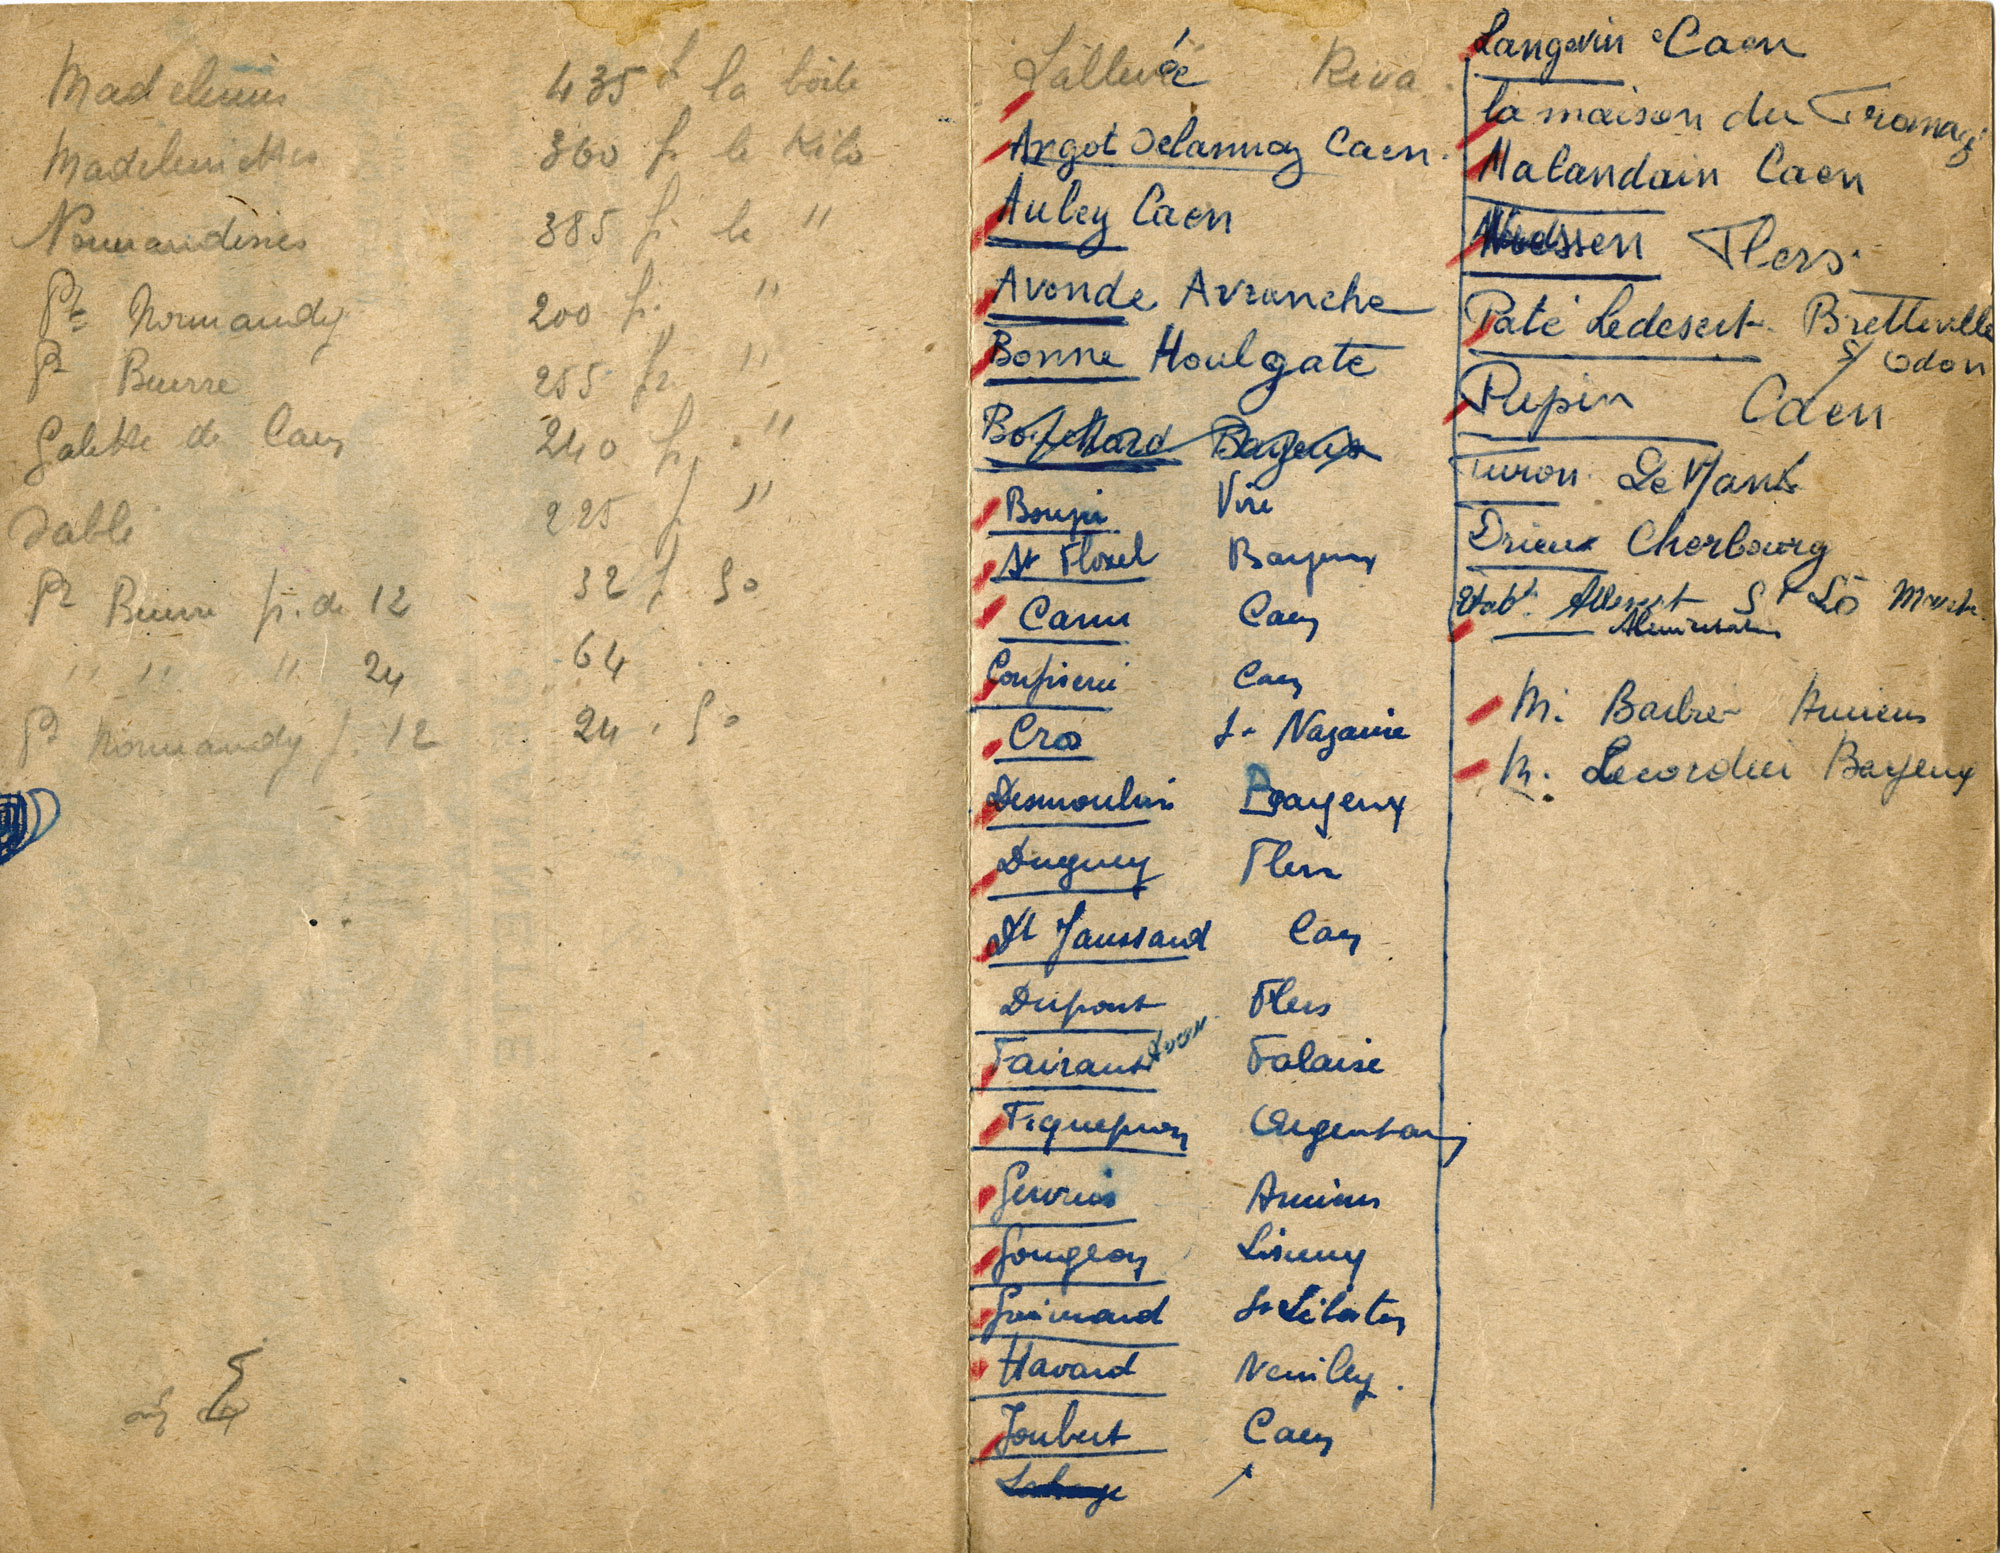 Madeleines 435 f la boîte
Madeleinettes 360 f. le Kilo
Normandines 385 f. le "
Pts Normandy 200 f. "
Pt Beurre 255 fr. "
Galette de Caen 240 f. "
Sablé 225 f "
Pt Beurre p. de 12 32 f. 50
" " " 24 64
Pt Normandy p. 12 24. 50
Lallevée Riva.
Argot Delaunay Caen.
Auley Caen
Avonde Avranche
Bonne Houlgate
Bayeux
Vire
St Floxel Bayeux
Canu Caen
Confiserie Caen
Cros St Nazaire
Desmoulins Bayeux
Duguey Flers
Dt Jaussard Caen
Dupont Flers
Fairant Falaise
Fiquepron Argentan
Gervais Amiens
Gougeon Lisieux
Guimard
Havard Neuilly.
Joubert Caen
Langevin Caen
la maison du Fromage
Malandain Caen
Flers.
Paté Ledesert. Bretteville
s/ Odon
Pepin Caen
Turon. Le Mans
Drieux Cherbourg
Etabt. St Lô Manche
Alimentation
M. Barbier Amiens
M. Lecordier Bayeux